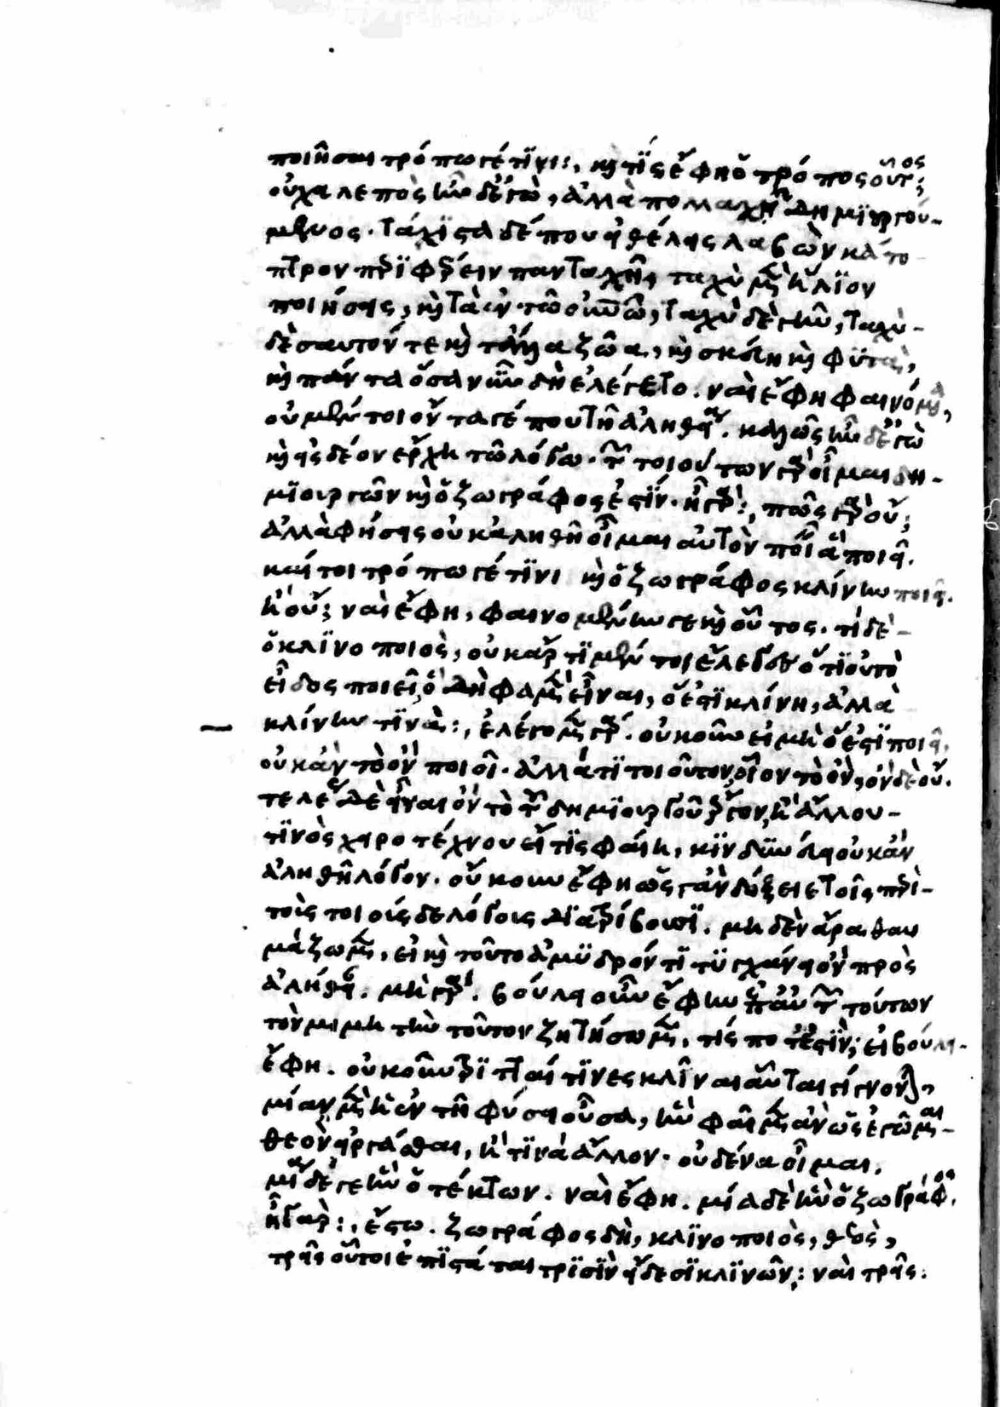 ποιῆσαι τρόπῳ γέ τινι; καὶ τίς ἔφη ὁ τρόπος οὗτος;
οὐ χαλεπὸς ἦν δ' ἐγὼ, ἀλλὰ πολλαχῇ καὶ ταχὺ δημιουργού-
μενος. τάχιστα δέ που εἰ θέλεις λαβὼν κάτο-
πτρον περιφέρειν πανταχῇ, ταχὺ μὲν ἥλιον
ποιήσεις, καὶ τὰ ἐν τῷ οὐρανῷ, ταχὺ δὲ γῆν, ταχὺ
δὲ σαυτόν τε καὶ τἄλλα ζῶα, καὶ σκεύη καὶ φυτὰ,
καὶ πάντα ὅσα νῦν δὴ ἐλέγετο. ναὶ ἔφη φαινόμενα,
οὐ μέντοι ὄντα γέ που τῇ ἀληθείᾳ. καλῶς ἦν δ' ἐγὼ
καὶ εἰς δέον ἔρχη τῷ λόγῳ. τῶν τοιούτων γὰρ οἶμαι δη-
μιουργῶν καὶ ὁ ζωγράφος ἐστίν. ἢ γάρ; πῶς γὰρ οὔ;
ἀλλὰ φήσεις οὐκ ἀληθῆ οἶμαι αὐτὸν ποιεῖν ἃ ποιεῖ.
καίτοι τρόπῳ γέ τινι καὶ ὁ ζωγράφος κλίνην ποιεῖ.
ἢ οὔ; ναὶ ἔφη, φαινομένην γε καὶ οὗτος. τί δὲ
ὁ κλινοποιὸς, οὐκ ἄρτι μέντοι ἔλεγες ὅτι οὐ τὸ
εἶδος ποιεῖ, ὃ δὴ φαμὲν εἶναι, ὃ ἔστι κλίνη, ἀλλὰ
κλίνην τινὰ; ἔλεγον γάρ. οὐκοῦν εἰ μὴ ὃ ἔστι ποιεῖ,
οὐκ ἂν τὸ ὂν ποιοῖ. ἀλλά τι τοιοῦτον, οἷον τὸ ὂν, ὂν δὲ οὔ.
τελέως δὲ εἶναι ὂν τὸ τοῦ δημιουργοῦ ἔργον, ἢ ἄλλου
τινὸς χειροτέχνου εἴ τις φαίη, κινδυνεύει οὐκ ἂν
ἀληθῆ λέγειν. οὔκουν ἔφη ὥς γ' ἂν δόξειε τοῖς περὶ
τοὺς τοιούσδε λόγους διατρίβουσι. μηδὲν ἄρα θαυ
μάζωμεν, εἰ καὶ τοῦτο ἀμυδρόν τι τυγχάνει ὂν πρὸς
ἀλήθειαν. μὴ γάρ. βούλει οὖν ἔφην ἐπ' αὐτῶν τούτων
τὸν μιμητὴν τοῦτον ζητήσωμεν, τίς ποτ' ἐστὶν; εἰ βούλει
ἔφη. οὐκοῦν τριτταί τινες κλῖναι αὗται γίγνονται,
μία μὲν ἡ ἐν τῇ φύσει οὖσα, ἣν φαῖμεν ἂν ὡς ἐγᾦμαι
θεὸν ἐργάσασθαι, ἢ τίνα ἄλλον. οὐδένα οἶμαι.
μία δέ γε ἣν ὁ τέκτων. ναὶ ἔφη. μία δὲ ἣν ὁ ζωγράφος.
ἦ γάρ; ἔστω. ζωγράφος δὴ, κλινοποιὸς, θεὸς,
τρεῖς οὗτοι ἐπιστάται τρισὶν εἴδεσι κλινῶν; ναὶ τρεῖς.